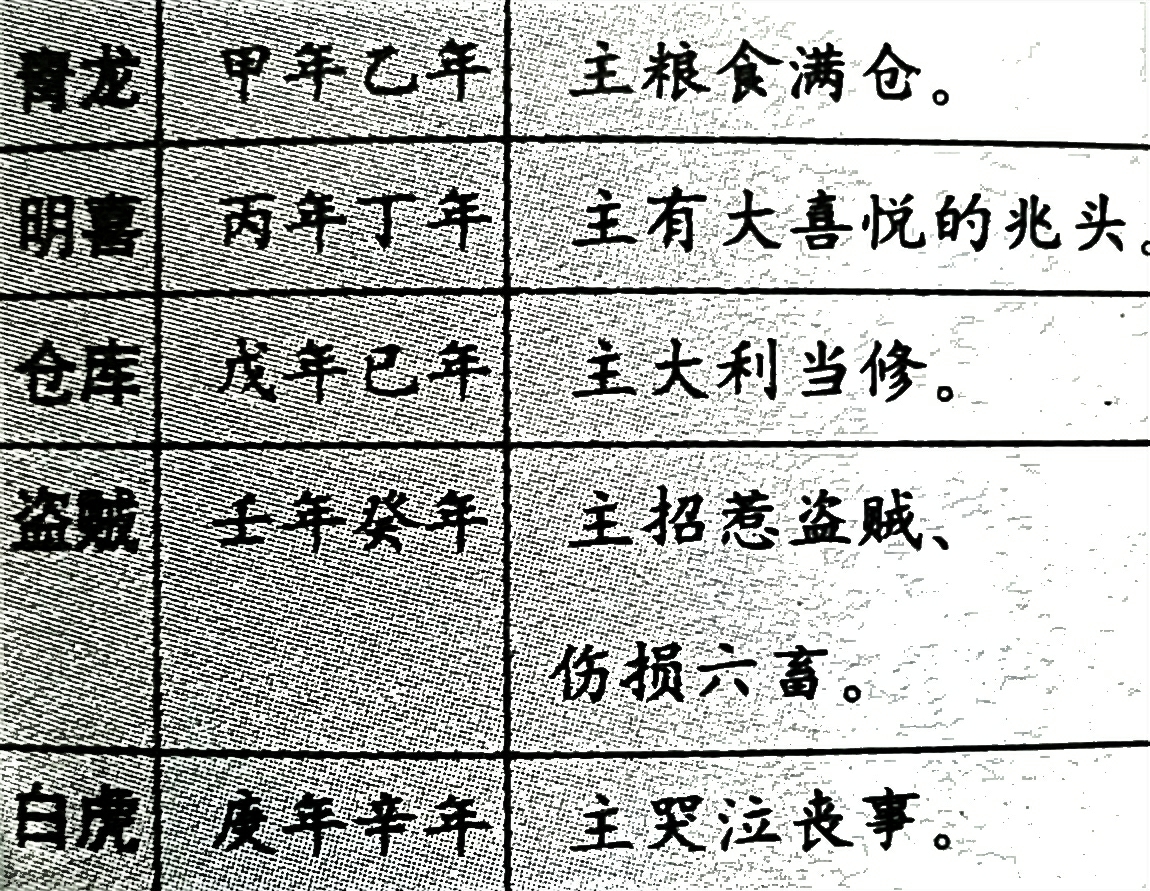 青龙 甲年乙年 主粮食满仓。
明喜 丙年丁年 主有大喜悦的兆头。
仓库 戊年巳年 主大利当修。
盗贼 壬年癸年 主招惹盗贼、
伤损六畜。
白虎 庚年辛年 主哭泣丧事。